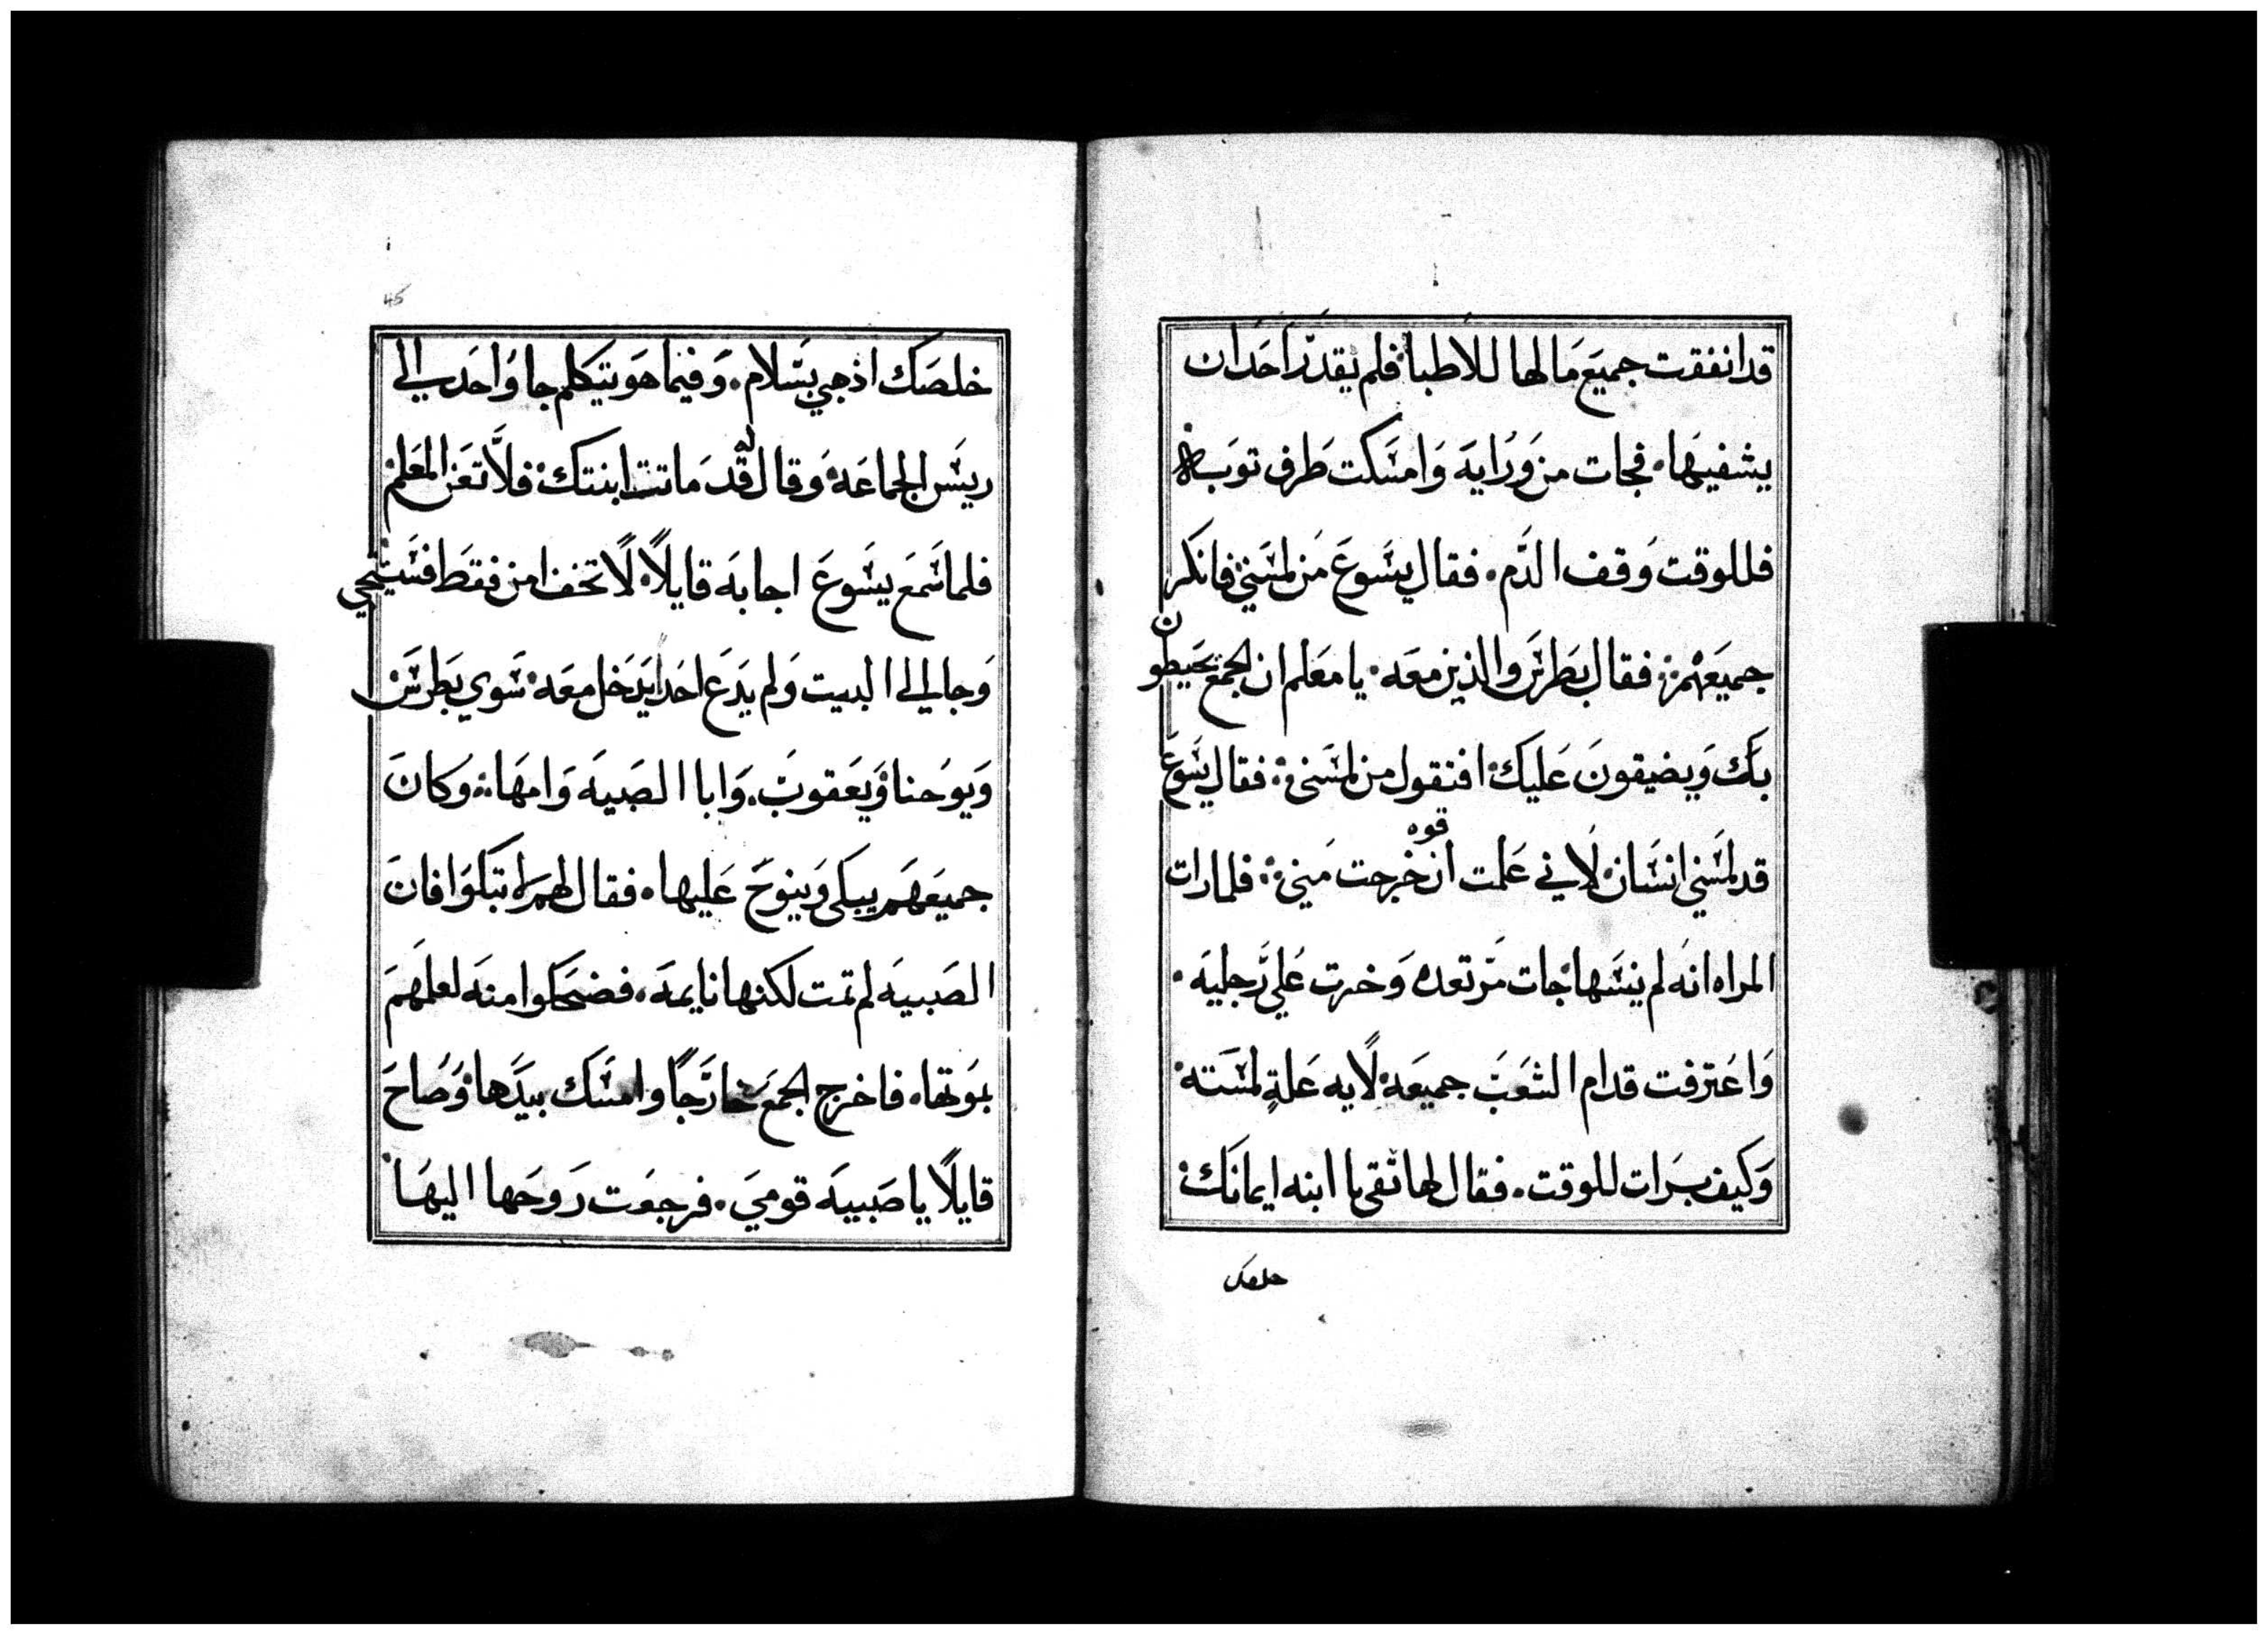 قد انفقت جميع مالها للاطبا فلم يقدر احد ان
يشفيها فجات من ورايه وامسكت طرف توبه
فللوقت وقف الدم فقال يسوع من لمسني فانكر
جميعهم فقال بطرس والذين معه يا معلم ان الجمع يحيطون
بك ويضيقون عليك افتقول من لمسني فقال يسوع
قد لمسني انسان لاني علمت ان قوه خرجت مني فلما رات
المراه انه لم ينسها جات مرتعده وخرت على رجليه
واعترفت قدام الشعب جميعه لايه علة لمسته
وكيف برات للوقت فقال لها ثقي يا ابنه ايمانك
خلصك
45
خلصك اذهبي بسلام وفيما هو يتكلم جا واحد الي
ريس الجماعه وقال له قد ماتت ابنتك فلا تعن المعلم
فلما سمع يسوع اجابه قايلاً لا تخف امن فقط فستحيي
وجا الي البيت ولم يدع احدا يدخل معه سوي بطرس
ويوحنا ويعقوب وابا الصبيه وامها وكان
جميعهم يبكي وينوح عليها فقال لهم لا تبكوا فان
الصبيه لم تمت لكنها نايمه فضحكوا منه لعلمهم
بموتها فاخرج الجمع خارجًا وامسك بيدها وصاح
قايلاً يا صبيه قومي فرجعت روحها اليها